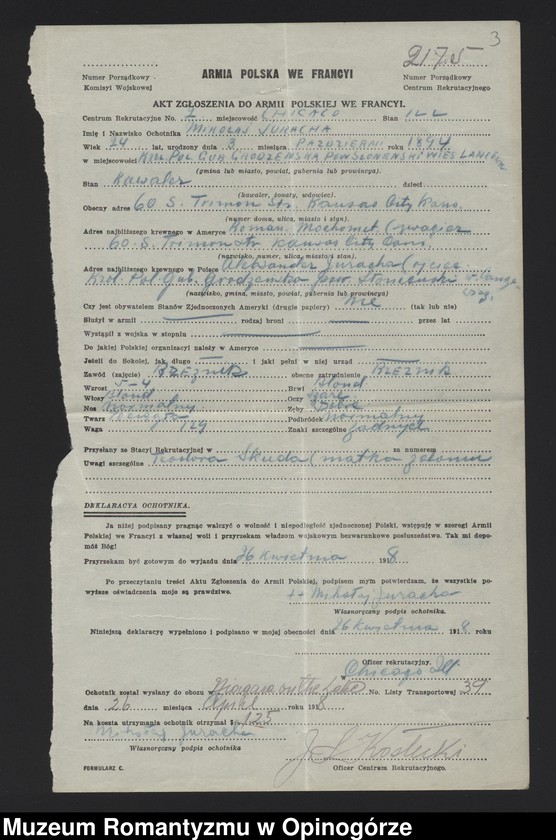 3
2175
Numer Porządkowy
Komisyi Wojskowej
ARMIA POLSKA WE FRANCYI
Numer Porządkowy
Centrum Rekrutacyjnego
AKT ZGŁOSZENIA DO ARMII POLSKIEJ WE FRANCYI.
Centrum Rekrutacyjne No. 1 miejscowość CHICAGO Stan ILL
Imię i Nazwisko Ochotnika MIKOŁAJ JURACHA
Wiek 24 lat, urodzony dnia 3 miesiąca PAŹDZIERN. roku 1894
w miejscowości KRÓL. POL. GUB. GRODZEŃSKA POW. SŁONEMSKI WIEŚ
(gmina lub miasto, powiat, gubernia lub prowincya).
Stan Kawaler dzieci
(kawaler, żonaty, wdowiec).
Obecny adres 60 S. Tremon Str. Kansas City Kans.
(numer domu, ulica, miasto i stan).
Adres najbliższego krewnego w Ameryce Roman (szwagier
60 S. Tremon str Kansas City Cans.
(nazwisko, numer, ulica, miasto i stan).
Adres najbliższego krewnego w Polsce Aleksander Juracha (ojciec
Król. Pol. Gub. Grodzenska pow.
(nazwisko, gmina, miasto, powiat, gubernia lub prowincya)
Czy jest obywatelem Stanów Zjednoczonych Ameryki (drugie papiery) Nie (tak lub nie)
Służył w armii rodzaj broni przez lat
Wystąpił z wojska w stopniu
Do jakiej Polskiej organizacyi należy w Ameryce
Jeżeli do Sokolej, jak długo i jaki pełni w niej urząd
Zawód (zajęcie) RZEZNIK obecne zatrudnienie RZEZNIK
Wzrost 5-4 Brwi blond
Włosy blond Oczy
Nos Normalny Zęby
Twarz Podbródek Normalny
Waga 129 Znaki szczególne żadnych
Przysłany ze Stacyi Rekrutacyjnej w za numerem
Uwagi szczególne Teodora Skuda (matka
DEKLARACYA OCHOTNIKA.
Ja niżej podpisany pragnąc walczyć o wolność i niepodległość zjednoczonej Polski, wstępuję w szeregi Armii
Polskiej we Francyi z własnej woli i przyrzekam władzom wojskowym bezwarunkowe posłuszeństwo. Tak mi dopo-
móż Bóg!
Przyrzekam być gotowym do wyjazdu dnia 26 kwietnia 1918
Po przeczytaniu treści Aktu Zgłoszenia do Armii Polskiej, podpisem mym potwierdzam, że wszystkie po-
wyższe oświadczenia moje są prawdziwe.
++ Mikołaj Juracha
Własnoręczny podpis ochotnika.
Niniejszą deklaracyę wypełniono i podpisano w mojej obecności dnia 26 kwietnia 1918 roku
Oficer rekrutacyjny.
w Chicago Ill
Ochotnik został wysłany do obozu w Niagara on the Lake No. Listy Transportowej 39
dnia 26 miesiąca April roku 1918
Na koszta utrzymania ochotnik otrzymał $ 1.25
Mikołaj Juracha
Własnoręczny podpis ochotnika
J S Kostecki
Oficer Centrum Rekrutacyjnego.
FORMULARZ C.
Muzeum Romantyzmu w Opinogórze